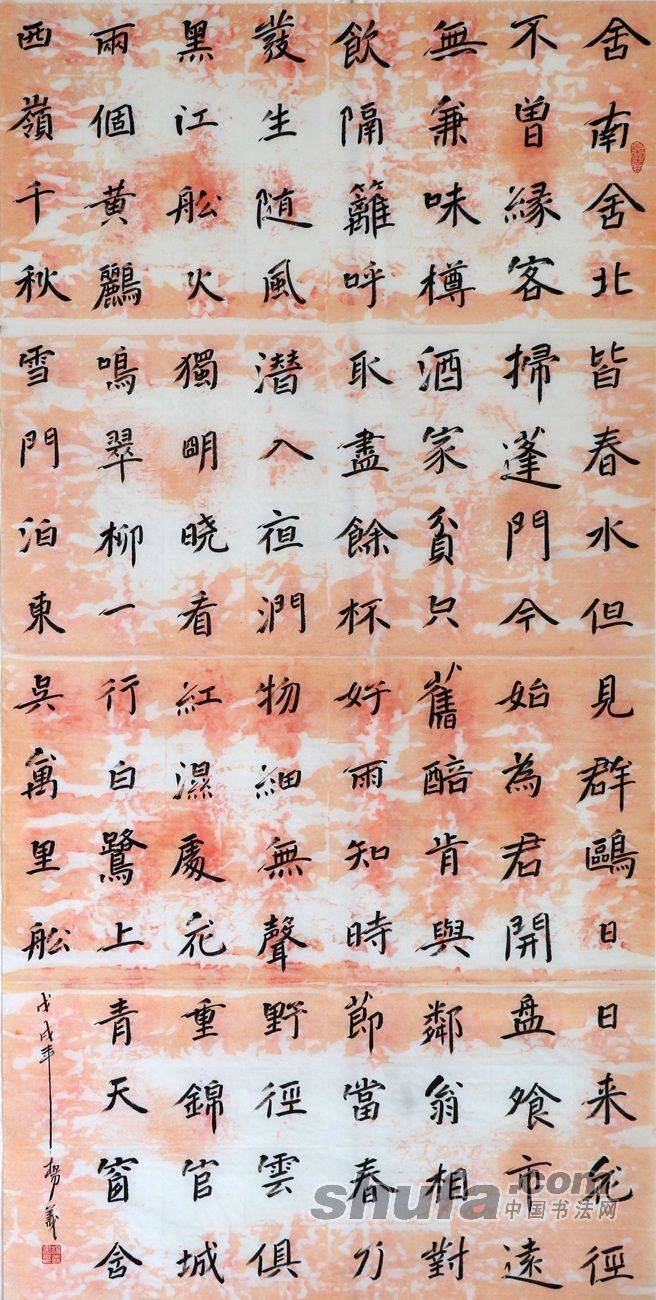 舍南舍北皆春水但見群鷗日日来花徑
不曾緣客掃蓬門今始為君開盘飧市遠
無兼味樽酒家貧只舊醅肯與鄰翁相對
飲隔籬呼取盡餘杯好雨知時節當春乃
發生随風潜入夜潤物細無聲野徑雲俱
黑江舩火獨眀晓看紅濕處花重錦官城
兩個黃鸝鳴翠柳一行白鷺上青天窗含
西嶺千秋雪門泊東吳萬里舩
戊戌年 楊義
shufa.com
中国书法网